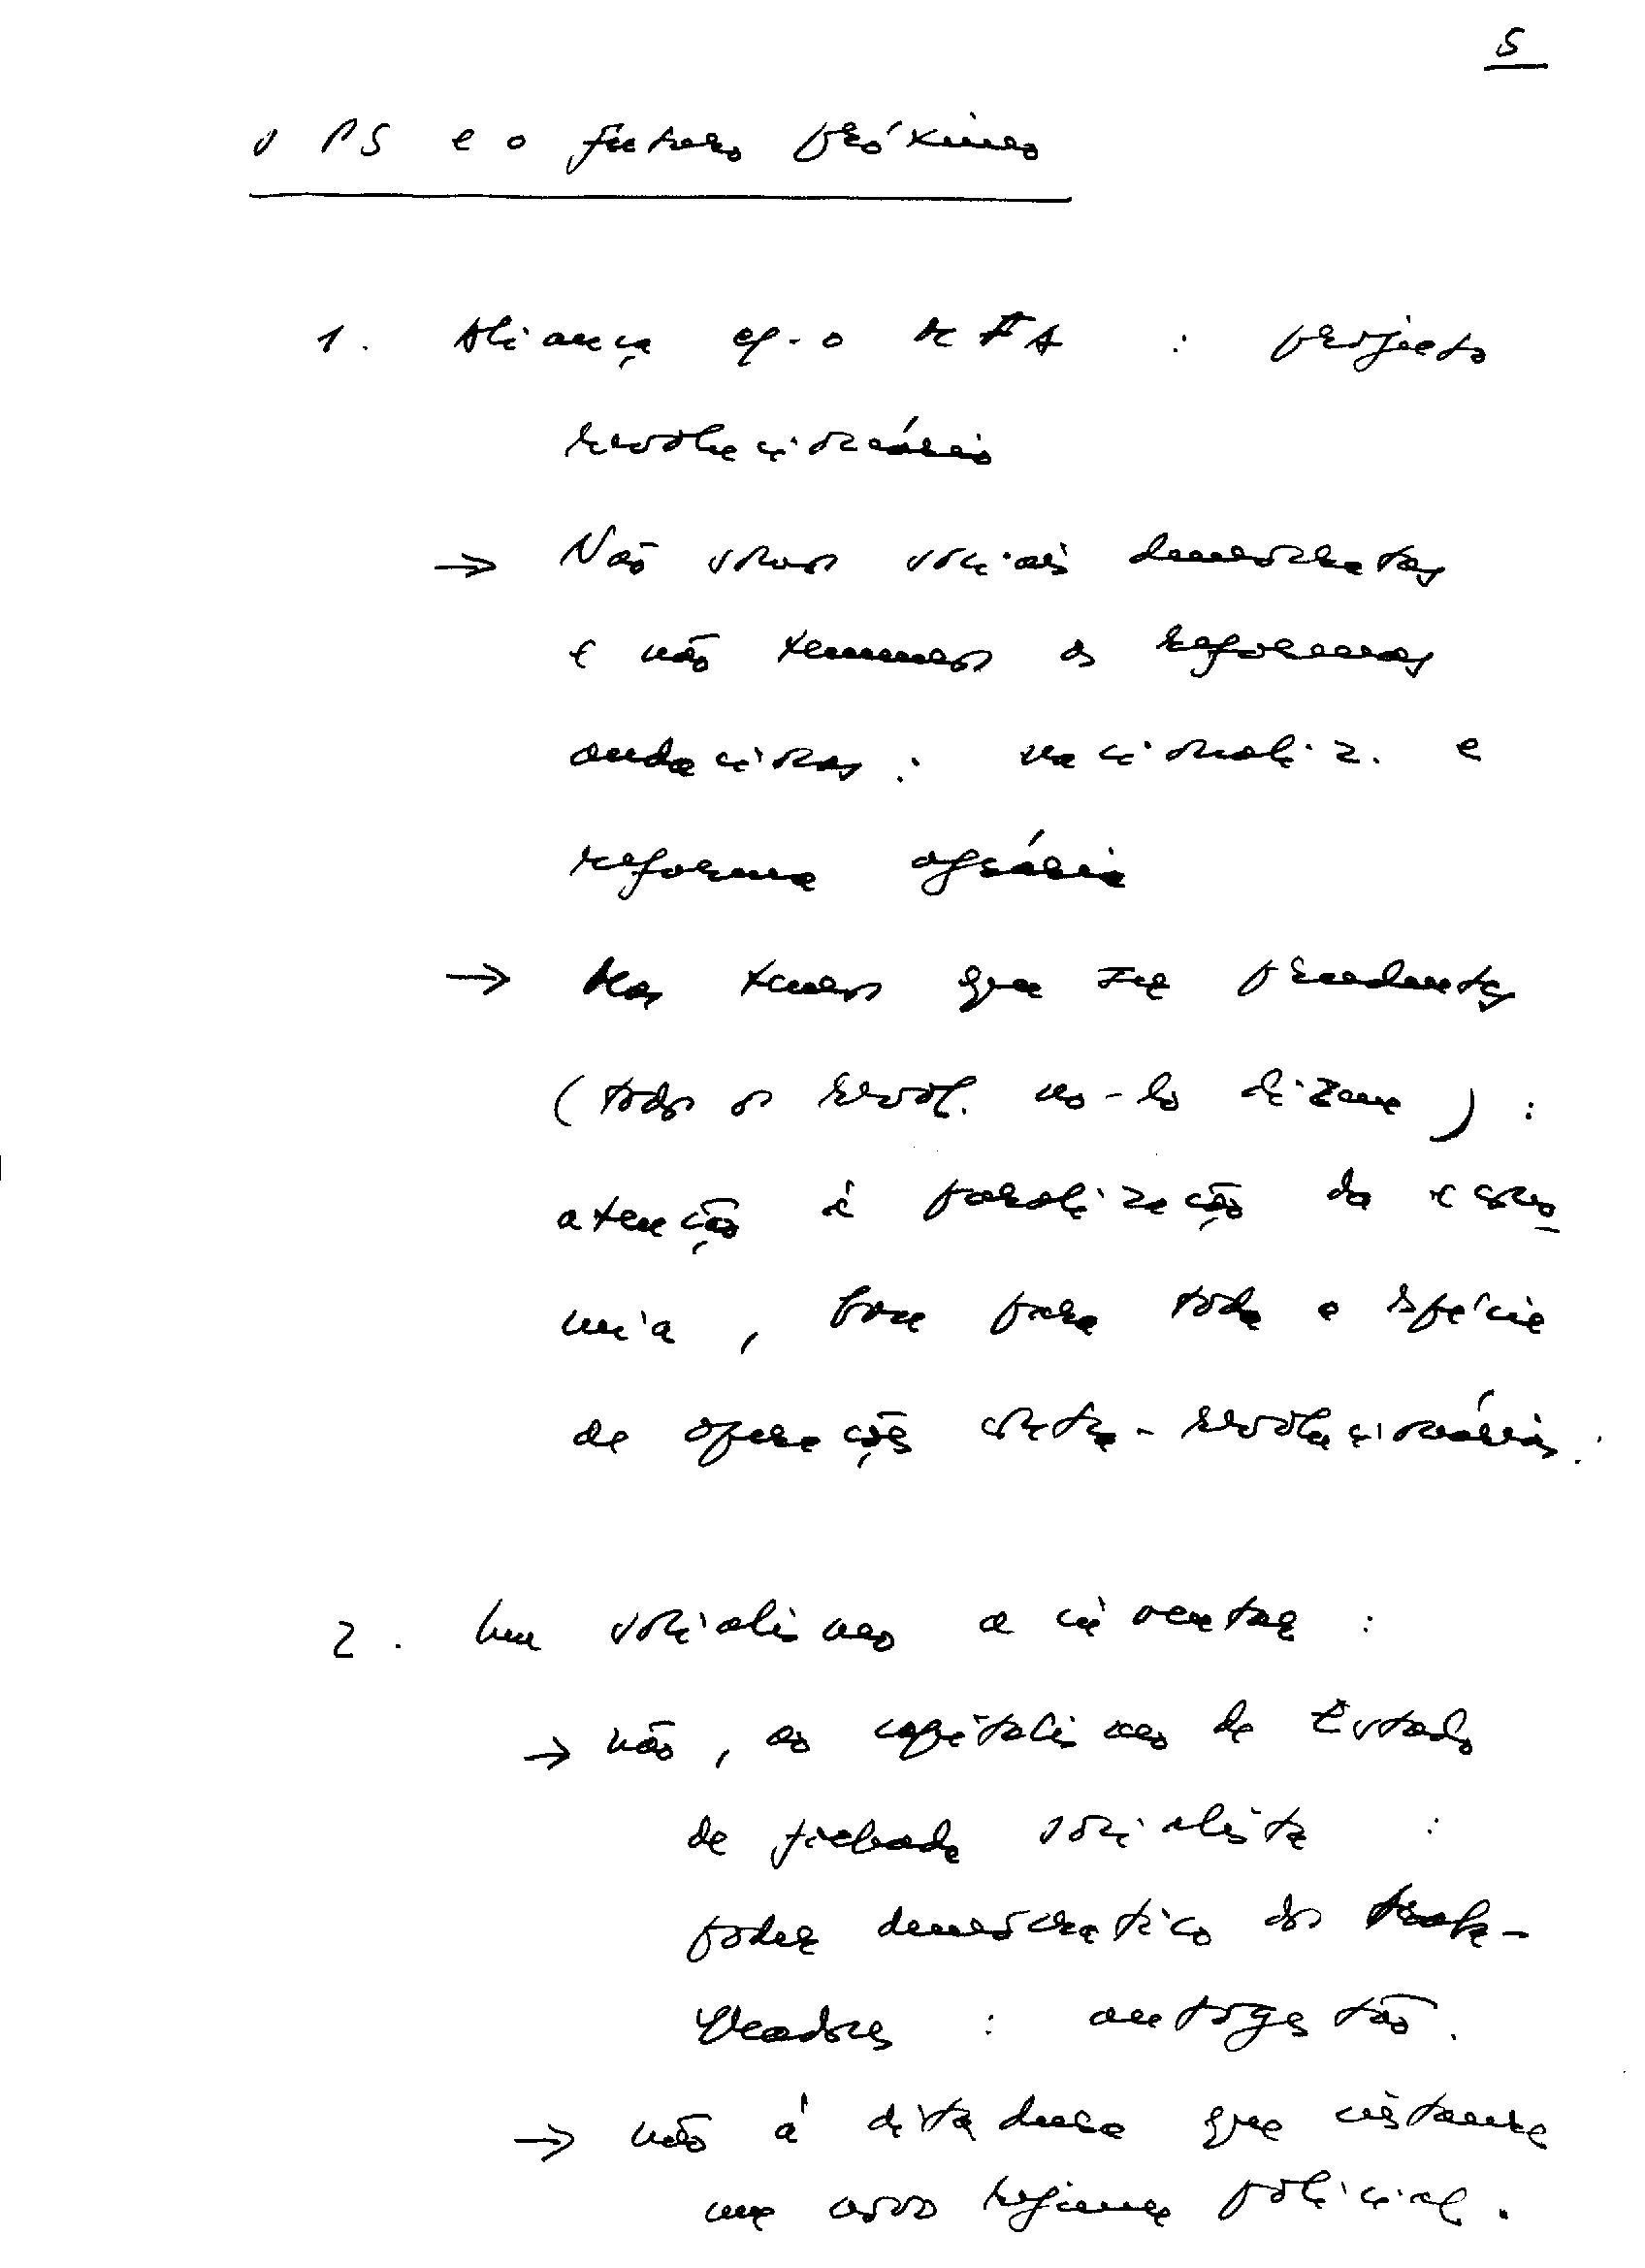 5
o PS e o futuro próximo
1. Aliança c/. o MFA : projecto
revolucionário
→ Não somos sociais democratas
e não tememos as reformas
audaciosas : nacionaliz. e
reforma agrária
→ Mas temos que ser prudentes
(todos os revol. no-lo dizem) :
atenção à paralização da econo
mia, boa para toda a espécie
de operações contra-revolucionárias.
2. Um socialismo a inventar :
→ não, ao capitalismo de Estado
de fachada socialista :
poder democrático dos traba-
lhadores : autogestão.
→ não à ditadura que instaure
um novo regime policial.